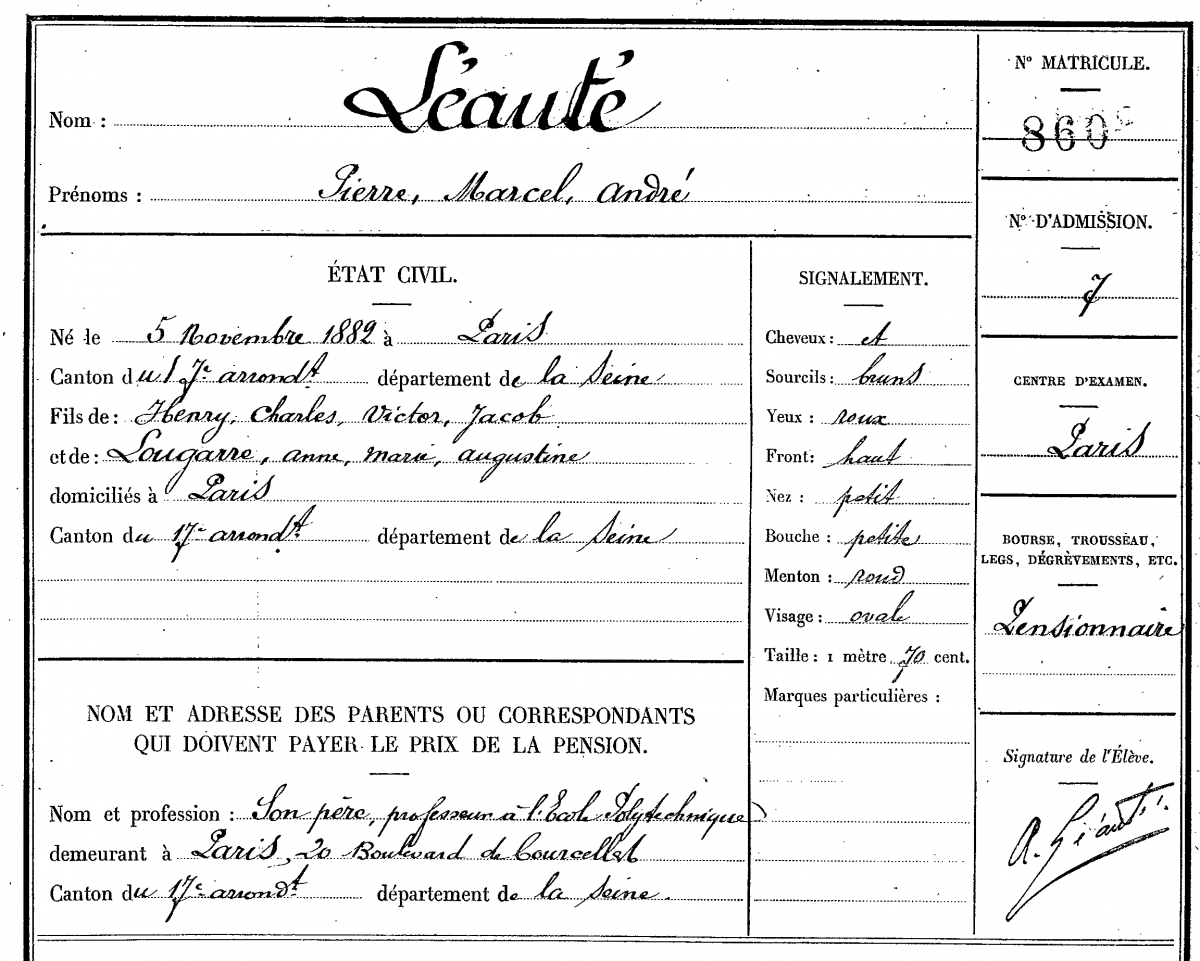 Nom : Léauté
Prénoms : Pierre, Marcel, André
ÉTAT CIVIL.
Né le 5 Novembre 1882 à Paris
Canton du 17e arrondt département de la Seine
Fils de : Henry, Charles, Victor, Jacob
et de : Lougarre, anne, marie, augustine
domiciliés à Paris
Canton du 17e arrondt département de la Seine
NOM ET ADRESSE DES PARENTS OU CORRESPONDANTS
QUI DOIVENT PAYER LE PRIX DE LA PENSION.
Nom et profession : Son père, professeur à l'Ecole Polytechnique
demeurant à Paris, 20 Boulevard de Courcelles
Canton du 17e arrondt département de la Seine.
SIGNALEMENT.
Cheveux : et
Sourcils : bruns
Yeux : roux
Front : haut
Nez : petit
Bouche : petite
Menton : rond
Visage : ovale
Taille : 1 mètre 70 cent.
Marques particulières :
N° MATRICULE.
860
N° D'ADMISSION.
7
CENTRE D'EXAMEN.
Paris
BOURSE, TROUSSEAU,
LEGS, DÉGRÈVEMENTS, ETC.
Pensionnaire
Signature de l'Élève.
A. Léauté